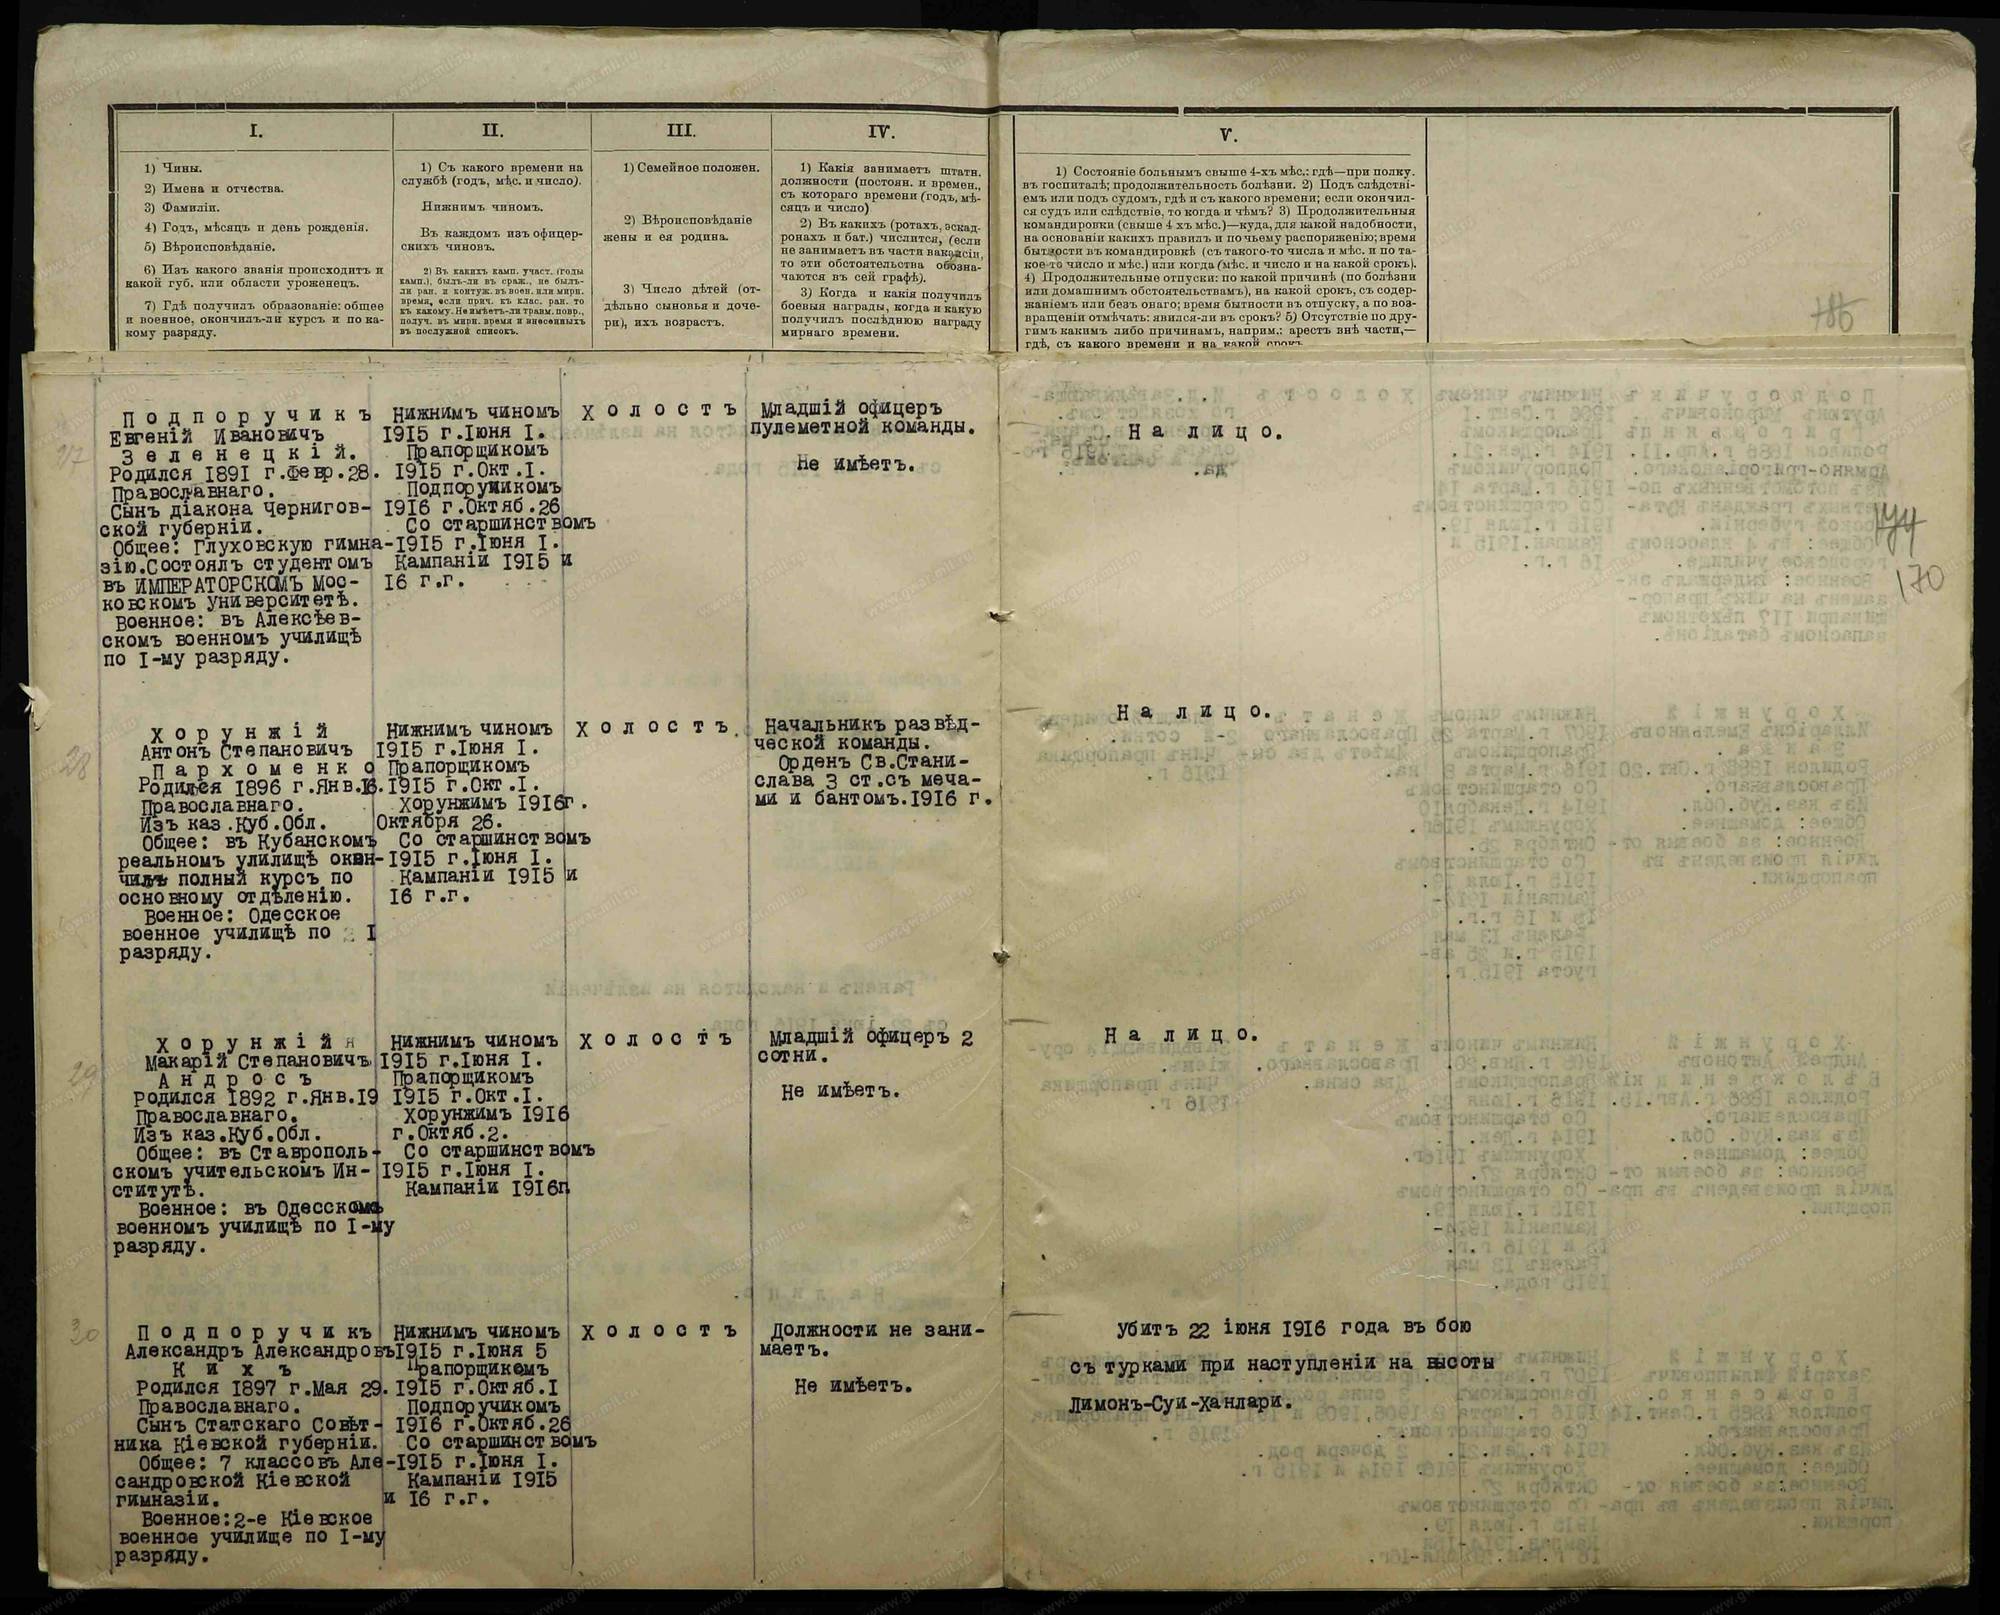 I.
1) Чины.
2) Имена и отчества.
3) Фамиліи.
4) Годъ, мѣсяцъ и день рожденія.
5) Вѣроисповѣданіе.
6) Изъ какого званія происходитъ и
какой губ. или области уроженецъ.
7) Гдѣ получилъ образованіе: общее
и военное, окончилъ-ли курсъ и по ка-
кому разряду.
II.
1) Съ какого времени на
службѣ (годъ, мѣс. и число).
Нижнимъ чиномъ.
Въ каждомъ изъ офицер-
скихъ чиновъ.
2) Въ какихъ камп. участ. (годы
камп.), былъ-ли въ сраж., не былъ-
ли ран. и контуж. въ воен. или мирн.
время, если прич. къ клас. ран. то
къ какому. Не имѣетъ-ли травм. повр.,
получ. въ мирн. время и внесенныхъ
въ послужной списокъ.
III.
1) Семейное положен.
2) Вѣроисповѣданіе
жены и ея родина.
3) Число дѣтей (от-
дѣльно сыновья и доче-
ри), ихъ возрастъ.
IV.
1) Какія занимаетъ штатн.
должности (постоян. и времен.,
съ котораго времени (годъ, мѣ-
сяцъ и число)
2) Въ какихъ (ротахъ, эскад-
ронахъ и бат.) числится, (если
не занимаетъ въ части вакансіи,
то эти обстоятельства обозна-
чаются въ сей графѣ).
3) Когда и какія получилъ
боевыя награды, когда и какую
получилъ послѣднюю награду
мирнаго времени.
V.
1) Состояніе больнымъ свыше 4-хъ мѣс.: гдѣ—при полку.
въ госпиталѣ; продолжительность болѣзни. 2) Подъ слѣдстві-
емъ или подъ судомъ, гдѣ и съ какого времени; если окончил-
ся судъ или слѣдствіе, то когда и чѣмъ? 3) Продолжительныя
командировки (свыше 4 хъ мѣс.)—куда, для какой надобности,
на основаніи какихъ правилъ и по чьему распоряженію; время
бытности въ командировкѣ (съ такого-то числа и мѣс. и по та-
кое-то число и мѣс.) или когда (мѣс. и число и на какой срокъ).
4) Продолжительные отпуски: по какой причинѣ (по болѣзни
или домашнимъ обстоятельствамъ), на какой срокъ, съ содер-
жаніемъ или безъ онаго; время бытности въ отпуску, а по воз-
вращеніи отмѣчать: явился-ли въ срокъ? 5) Отсутствіе по дру-
гимъ какимъ либо причинамъ, наприм.: арестъ внѣ части,—
гдѣ, съ какого времени и на какой срокъ
186
174
170
27
Подпоручикъ
Евгеній Ивановичъ
Зеленецкій.
Родился 1891 г.Февр.28.
Православнаго.
Сынъ діакона Чернигов-
ской губерніи.
Общее: Глуховскую гимна-
зію.Состоялъ студентомъ
въ ИМПЕРАТОРСКОМЪ Мос-
ковскомъ университетѣ.
Военное: въ Алексѣев-
скомъ военномъ училищѣ
по I-му разряду.
Нижнимъ чиномъ
1915 г.Іюня I.
Прапорщикомъ
1915 г.Окт.I.
Подпоручикомъ
1916 г.Октяб.26
Со старшинствомъ
1915 г.Іюня I.
Кампаніи 1915 и
16 г.г.
Холостъ
Младшій офицеръ
пулеметной команды.
Не имѣетъ.
На лицо.
28
Хорунжій
Антонъ Степановичъ
Пархоменко
Родился 1896 г.Янв.16.
Православнаго.
Изъ каз.Куб.Обл.
Общее: въ Кубанскомъ
реальномъ улилищѣ окон-
чилъ полный курсъ по
основному отдѣленію.
Военное: Одесское
военное училищѣ по I
разряду.
Нижнимъ чиномъ
1915 г.Іюня I.
Прапорщикомъ
1915 г.Окт.I.
Хорунжимъ 1916г.
Октября 26.
Со старшинствомъ
1915 г.Іюня I.
Кампаніи 1915 и
16 г.г.
Холостъ.
Начальникъ развѣд-
ческой команды.
Орденъ Св.Стани-
слава 3 ст.съ меча-
ми и бантомъ.1916 г.
На лицо.
29
Хорунжій
Макарій Степановичъ
Андросъ
Родился 1892 г.Янв.19
Православнаго.
Изъ каз.Куб.Обл.
Общее: въ Ставрополь-
скомъ учительскомъ Ин-
ститутѣ.
Военное: въ Одесскомъ
военномъ училищѣ по I-му
разряду.
Нижнимъ чиномъ
1915 г.Іюня I.
Прапорщикомъ
1915 г.Окт.I.
Хорунжимъ 1916
г.Октяб.2.
Со старшинствомъ
1915 г.Іюня I.
Кампаніи 1916г
Холостъ
Младшій офицеръ 2
сотни.
Не имѣетъ.
На лицо.
30
Подпоручикъ
Александръ Александровъ
Кихъ
Родился 1897 г.Мая 29.
Православнаго.
Сынъ Статскаго Совѣт-
ника Кіевской губерніи.
Общее: 7 классовъ Але-
сандровской Кіевской
гимназіи.
Военное:2-е Кіевское
военное училище по I-му
разряду.
Нижнимъ чиномъ
1915 г.Іюня 5
Прапорщикомъ
1915 г.Октяб.I
Подпоручикомъ
1916 г.Октяб.26
Со старшинствомъ
1915 г.Іюня I.
Кампаніи 1915
и 16 г.г.
Холостъ
Должности не зани-
маетъ.
Не имѣетъ.
Убитъ 22 іюня 1916 года въ бою
съ турками при наступленіи на высоты
Лимонъ-Суи-Ханлари.